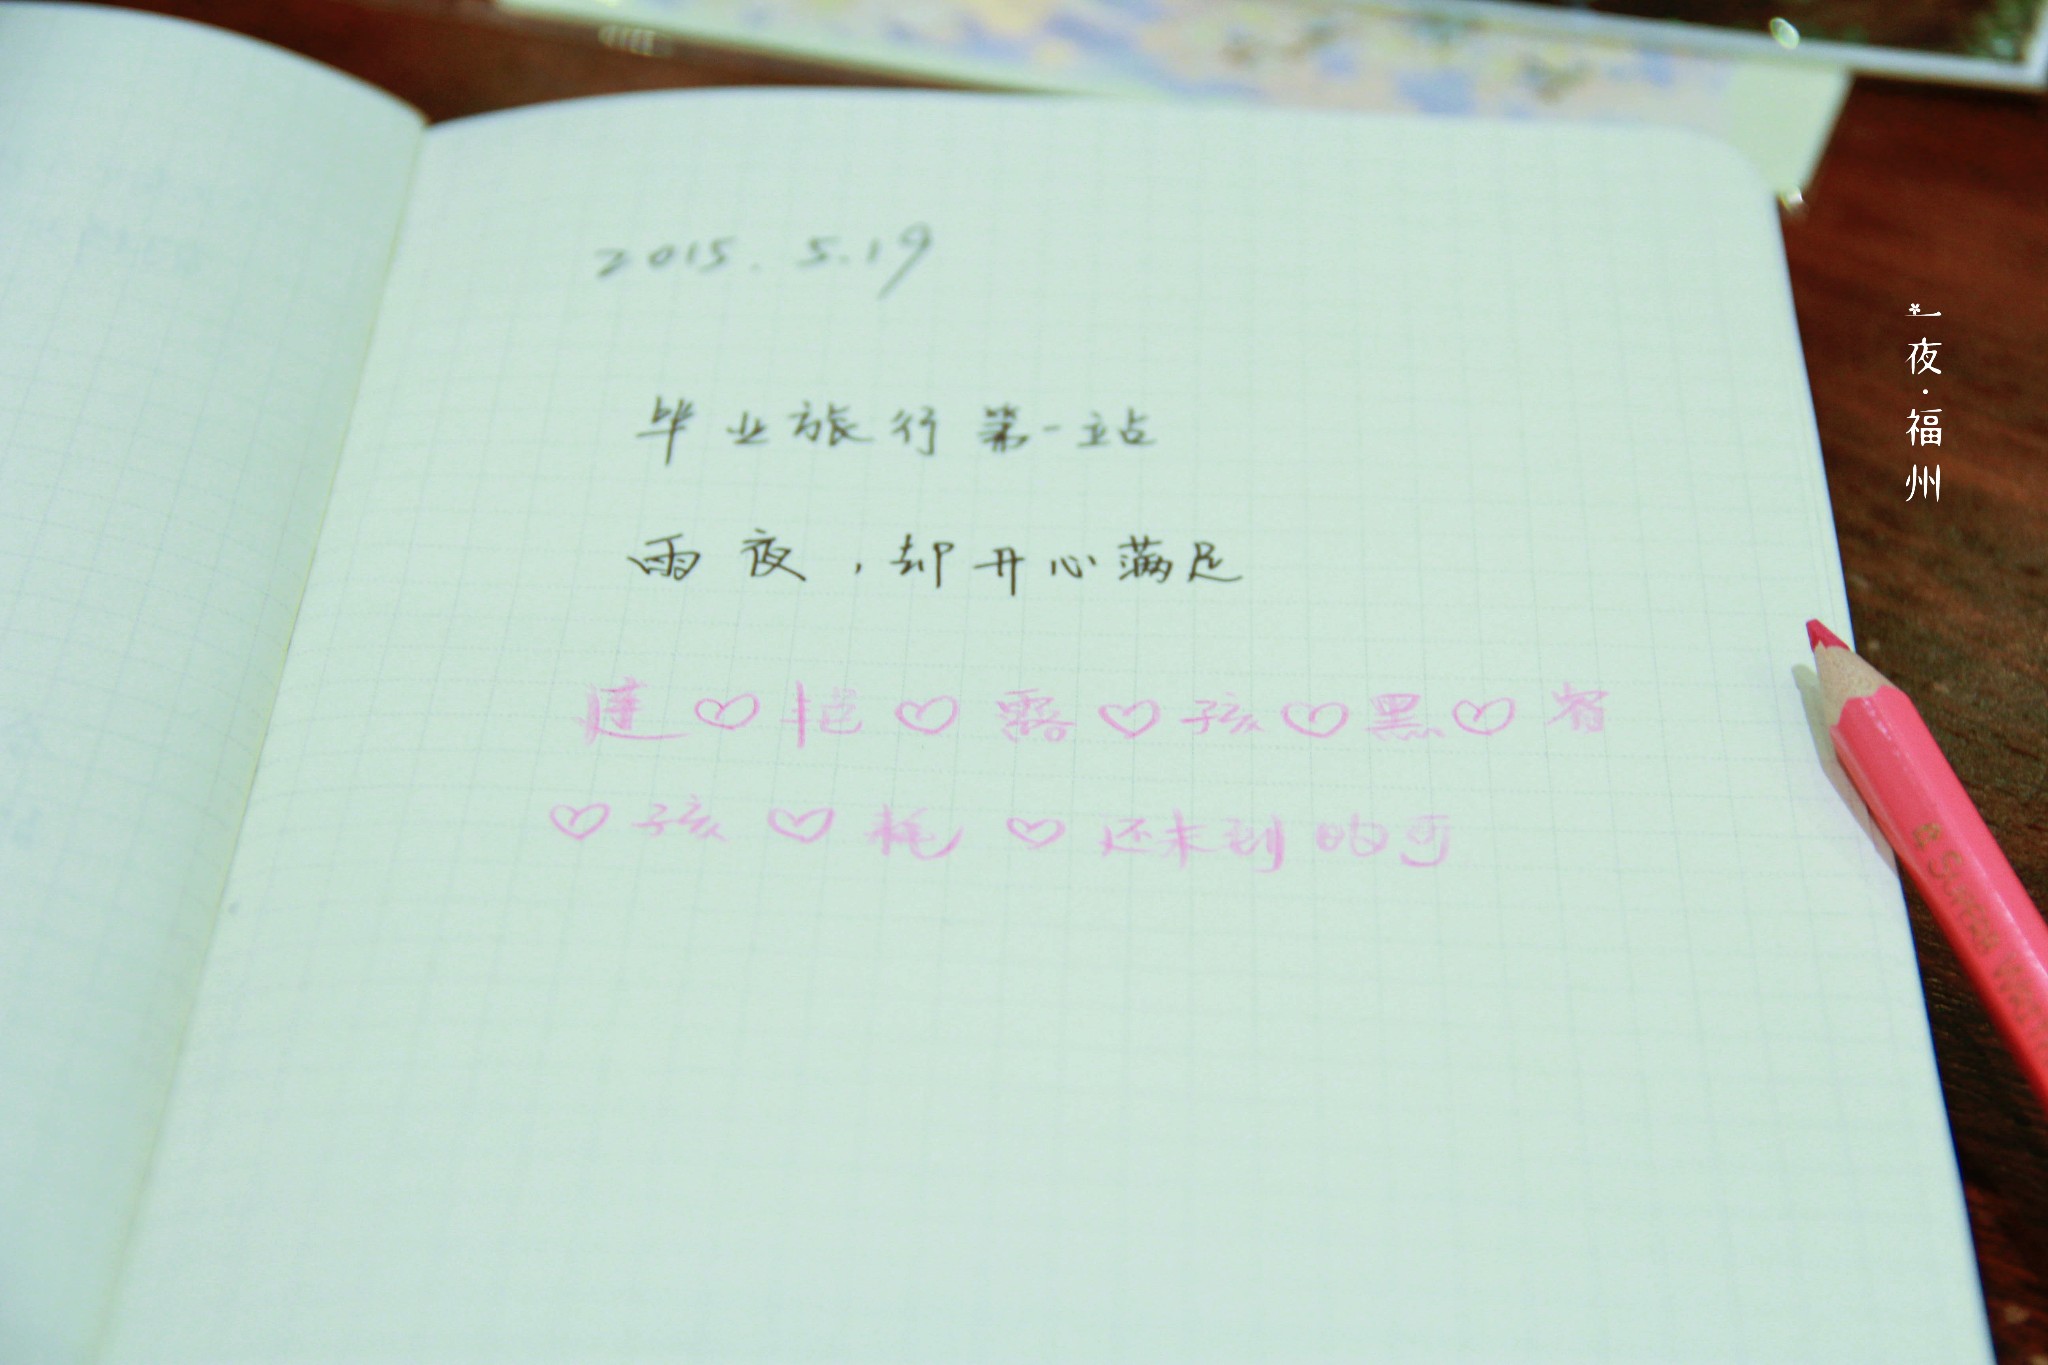 2015.5.19
毕业旅行第一站
雨夜，却开心满足
莲♡艳♡露♡孩♡黑♡省
♡孩♡耗♡还未到的可
一夜·福州